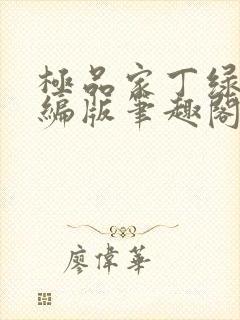 極品家丁绿
編版筆趣閣
廖偉華